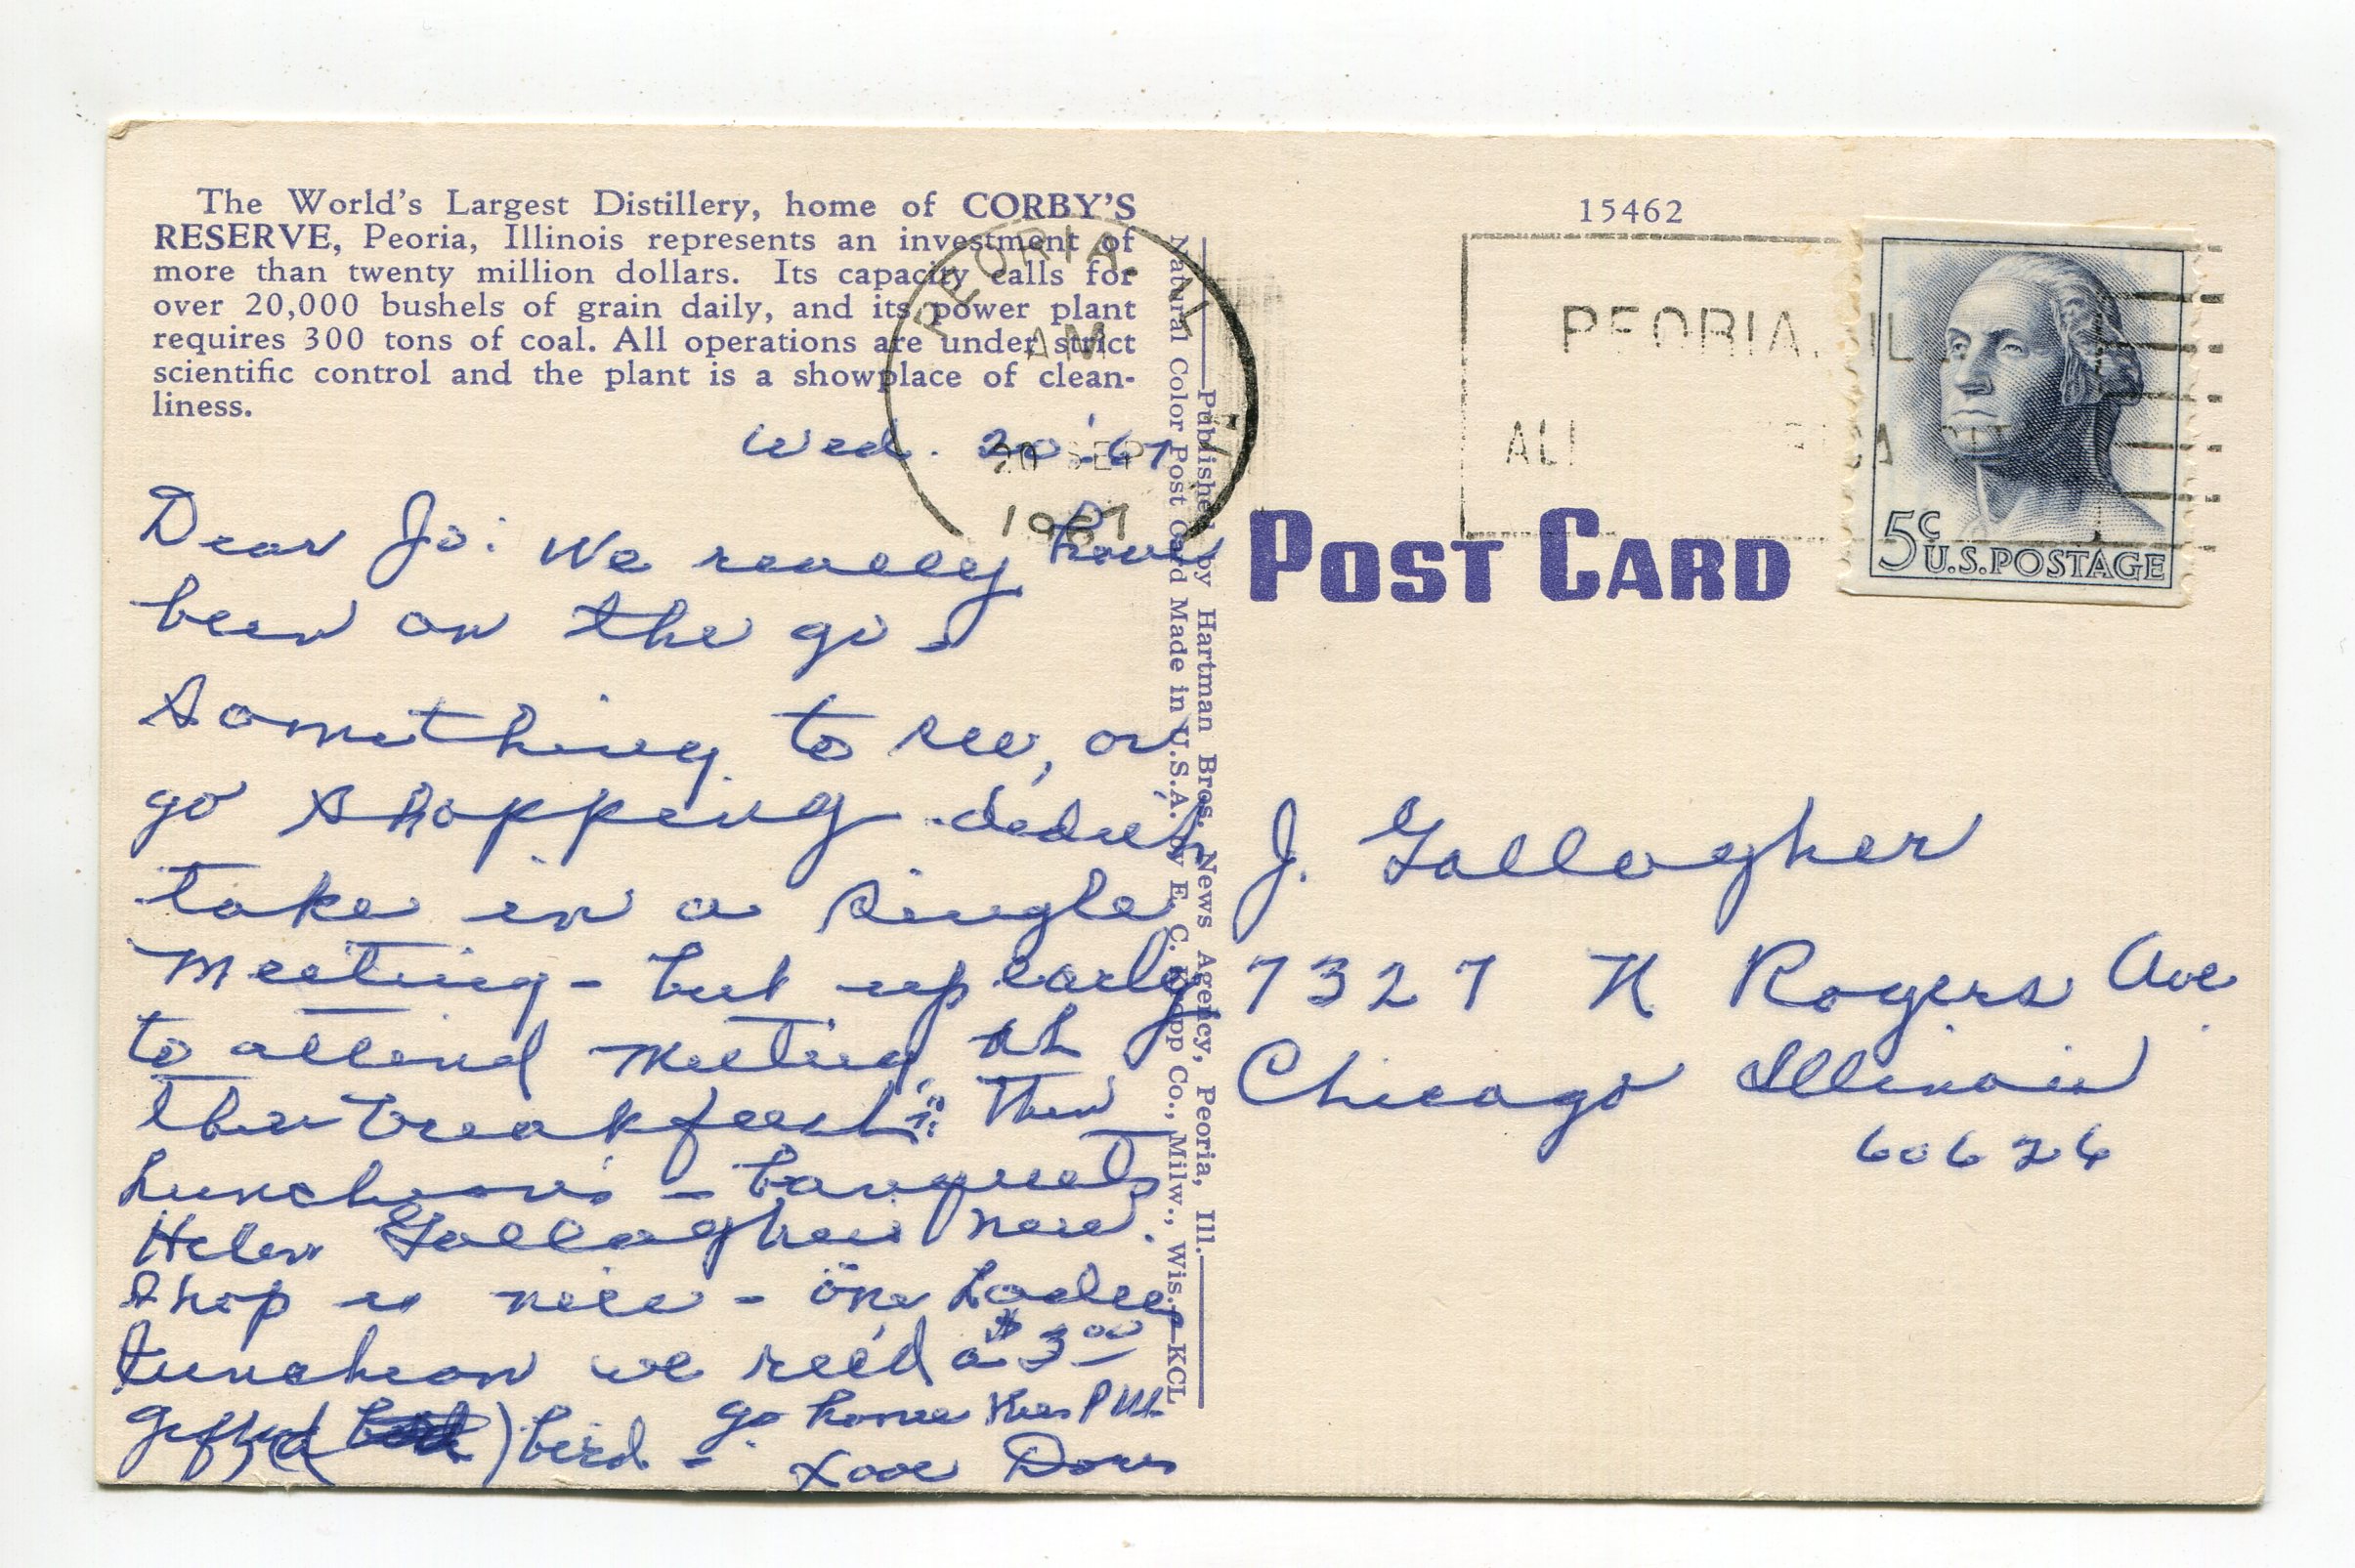 The World's Largest Distillery, home of CORBY'S
RESERVE, Peoria, Illinois represents an investment of
more than twenty million dollars. Its capacity calls for
over 20,000 bushels of grain daily, and its power plant
requires 300 tons of coal. All operations are under strict
scientific control and the plant is a showplace of clean-
liness.
Wed. 20-'67
Dear Jo: We really have
been on the go -
Something to see, or
go shopping - didn't
take in a single
meeting - but up early
to attend meeting at
their breakfast's then
Luncheons - banquets
Helen Gallaghers new
shop is nice - one Ladies
Luncheon we rec'd a $3.00
gift, (a ) bird - go home this P.M.
Love Doris
Published by Hartman Bros. News Agency, Peoria, Ill.
Natural Color Post Card Made in U.S.A. by E. C. Kropp Co., Milw., Wis.—KCL
PEORIA, IL
AM
20 SEP
1967
15462
PEORIA, IL
ALL
5c
U.S. POSTAGE
POST CARD
J. Gallagher
7327 N Rogers Ave.
Chicago Illinois
60626